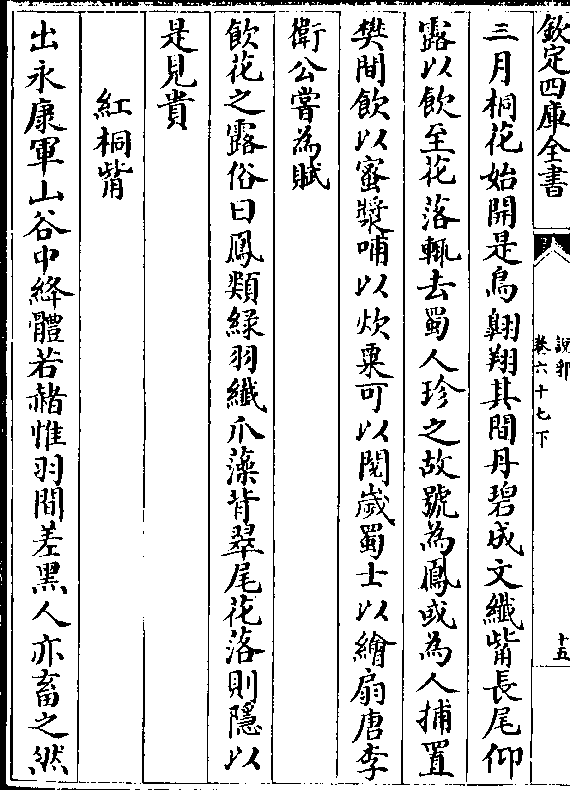 欽定四庫全書
說郛
卷六十七下
十五
三月桐花始開是鳥翺翔其間丹碧成文纎觜長尾仰
露以飲至花落輒去蜀人珍之故號為鳳或為人捕置
樊間飲以蜜漿哺以炊粟可以閱歲蜀士以繪扇唐李
衛公嘗為賦
飲花之露俗曰鳳類緑羽纎爪藻背翠尾花落則隱以
是見貴
紅桐觜
出永康軍山谷中絳體若赭惟羽間差黑人亦畜之然